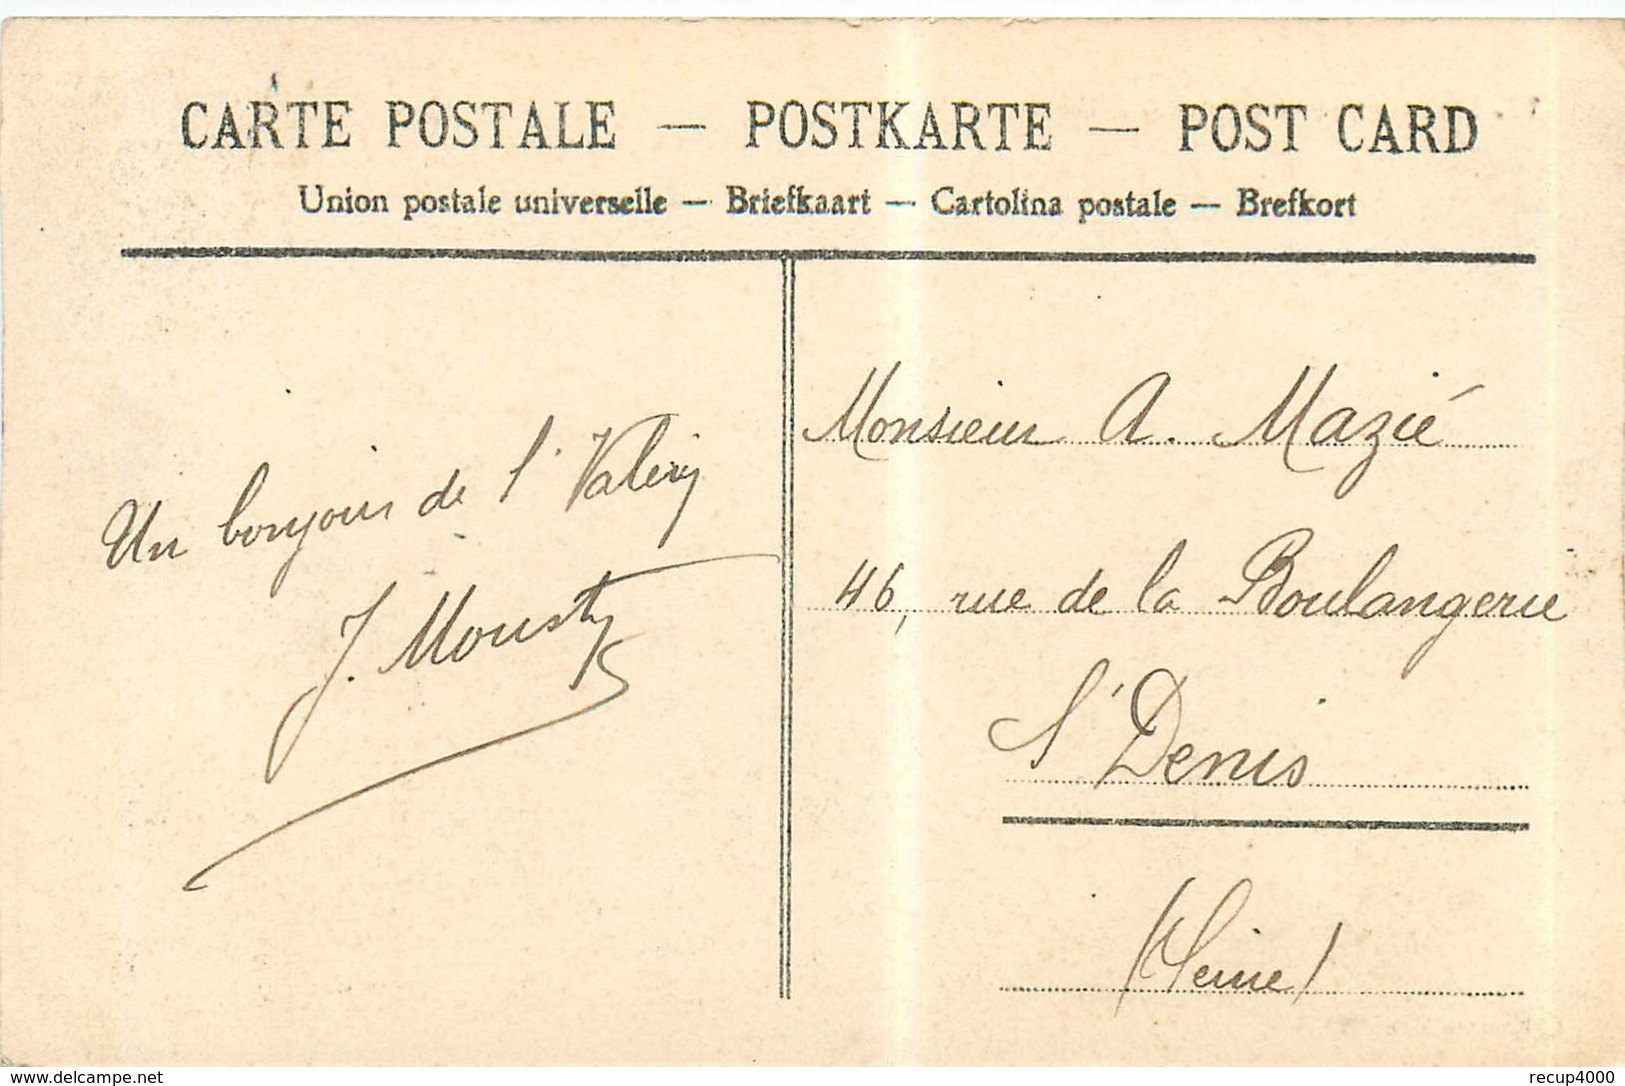 CARTE POSTALE — POSTKARTE — POST CARD
Union postale universelle — Briefkaart — Cartolina postale — Brefkort
Un bonjour de St Valéry
J. Mousty
Monsieur A. Mazié
46, rue de la Boulangerie
St Denis
(Seine)
www.delcampe.net
recup4000